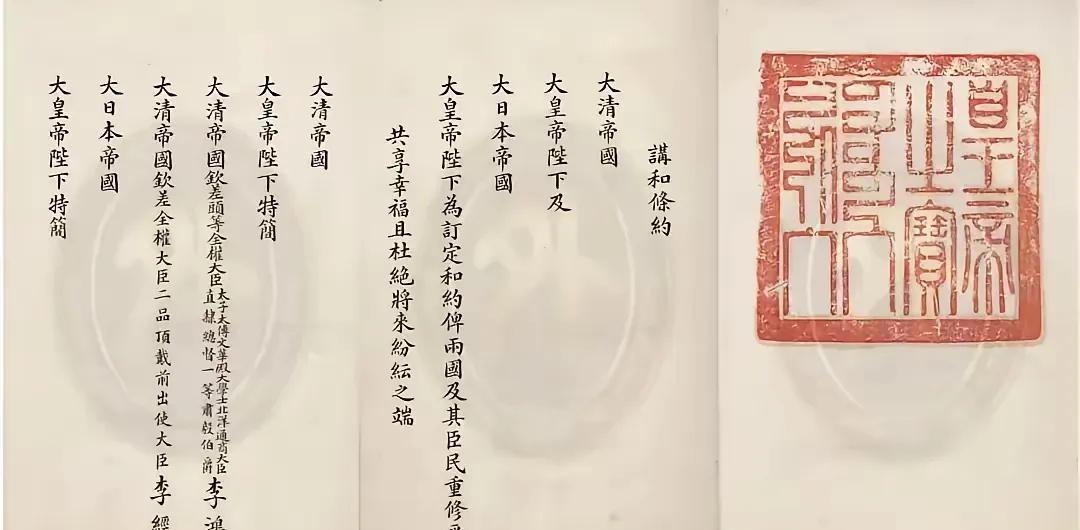 皇帝
之寶
講和條約
大清帝國
大皇帝陛下及
大日本帝國
大皇帝陛下為訂定和約俾兩國及其臣民重修
共享幸福且杜絕將來紛紜之端
大清帝國
大皇帝陛下特簡
大清帝國欽差頭等全權大臣太子太傅文華殿大學士北洋通商大臣直隸總督一等肅毅伯爵李鴻
大清帝國欽差全權大臣二品頂戴前出使大臣李經
大日本帝國
大皇帝陛下特簡